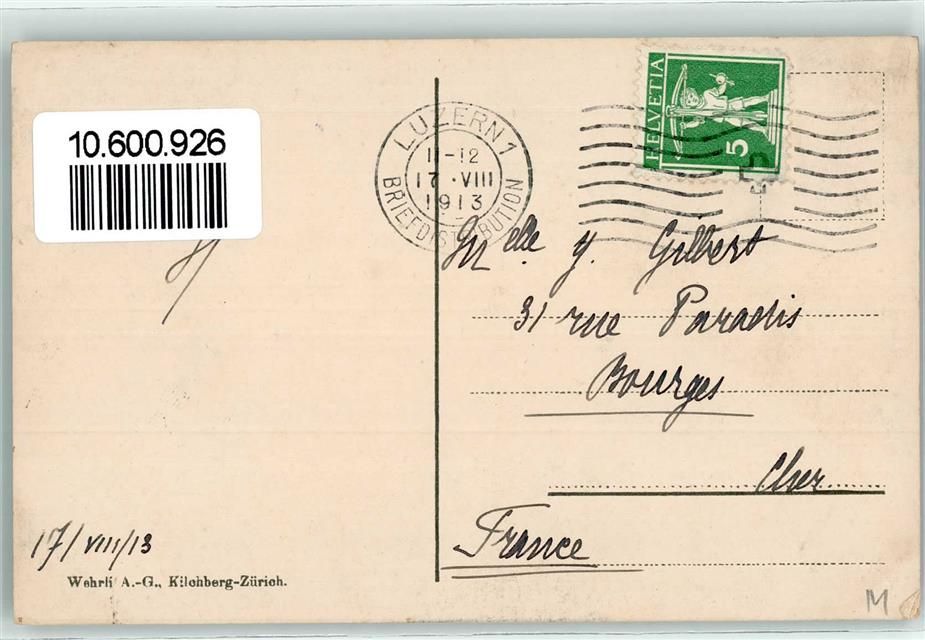 10.600.926
LUZERN 1
11-12
17.VIII
1913
BRIEFDISTRIBUTION
HELVETIA
5
Melle y. Gilbert
31 rue Paradis
Bourges
Cher
France
17/VIII/13
Wehrli A.-G., Kilchberg-Zürich.
M